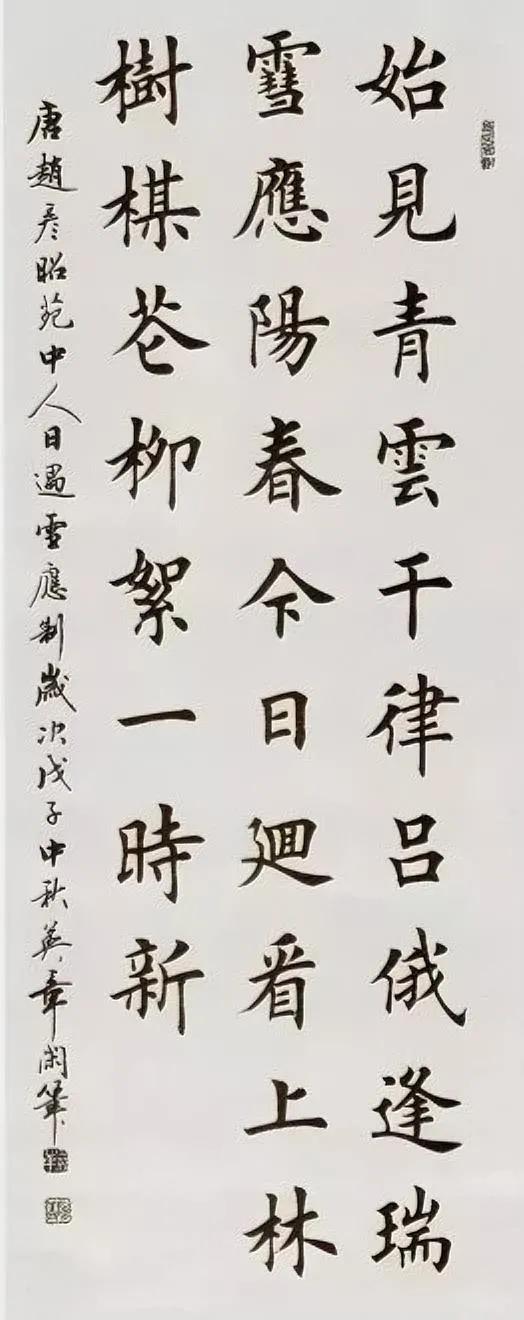 始見青雲干律呂俄逢瑞
雪應陽春今日迴看上林
樹楳花柳絮一時新
唐趙彦昭苑中人日遇雪應制歲次戊子中秋英章閑筆